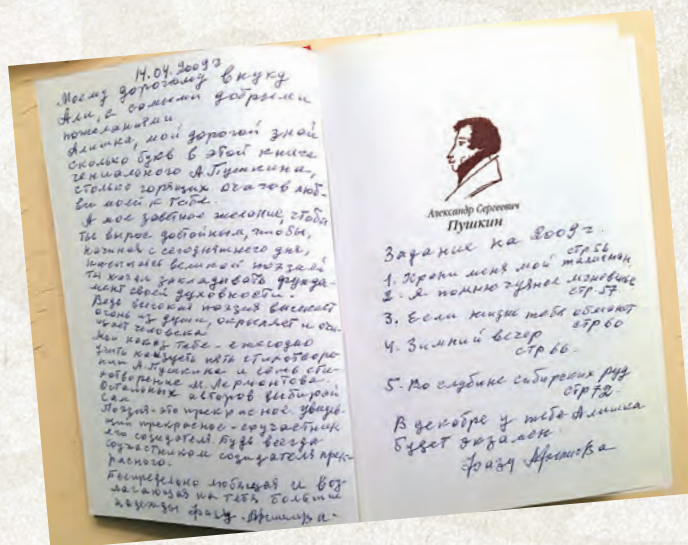 14.04.2009 г
Моему дорогому внуку
Али, с самыми добрыми
пожеланиями
Алишка, мой дорогой знай
сколько букв в этой книге
гениального А.Пушкина,
столько горящих очагов люб-
ви моей к тебе.
А мое заветное желание, чтобы
ты вырос достойным, чтобы,
начиная с сегодняшнего дня,
великой поэзией
ты начал закладывать фунда-
мент своей духовности.
Ведь высокая поэзия высекает
огонь из души, окрыляет и очи-
щает человека
Мой наказ тебе - ежегодно
учить наизусть пять стихотворе-
ний А.Пушкина и семь сти-
хотворение М.Лермонтова.
Остальных авторов выбирай
сам
Поэзия - это прекрасное, увидев-
ший прекрасное - соучастник
его созидателя. Будь всегда
соучастником созидателя прек-
расного.
Беспредельно любящая и воз-
лагающая на тебя большие
надежды Фазу Алиева.
Александр Сергеевич
Пушкин
Задание на 2009 г.
стр 56
1. Храни меня мой талисман
2. Я помню чудное мгновенье
стр. 57
3. Если жизнь тебя обманет
стр 60
4. Зимний вечер
стр 66.
5. Во глубине сибирских руд
стр 72.
В декабре у тебя Алишка
будет экзамен
Фазу Алиева